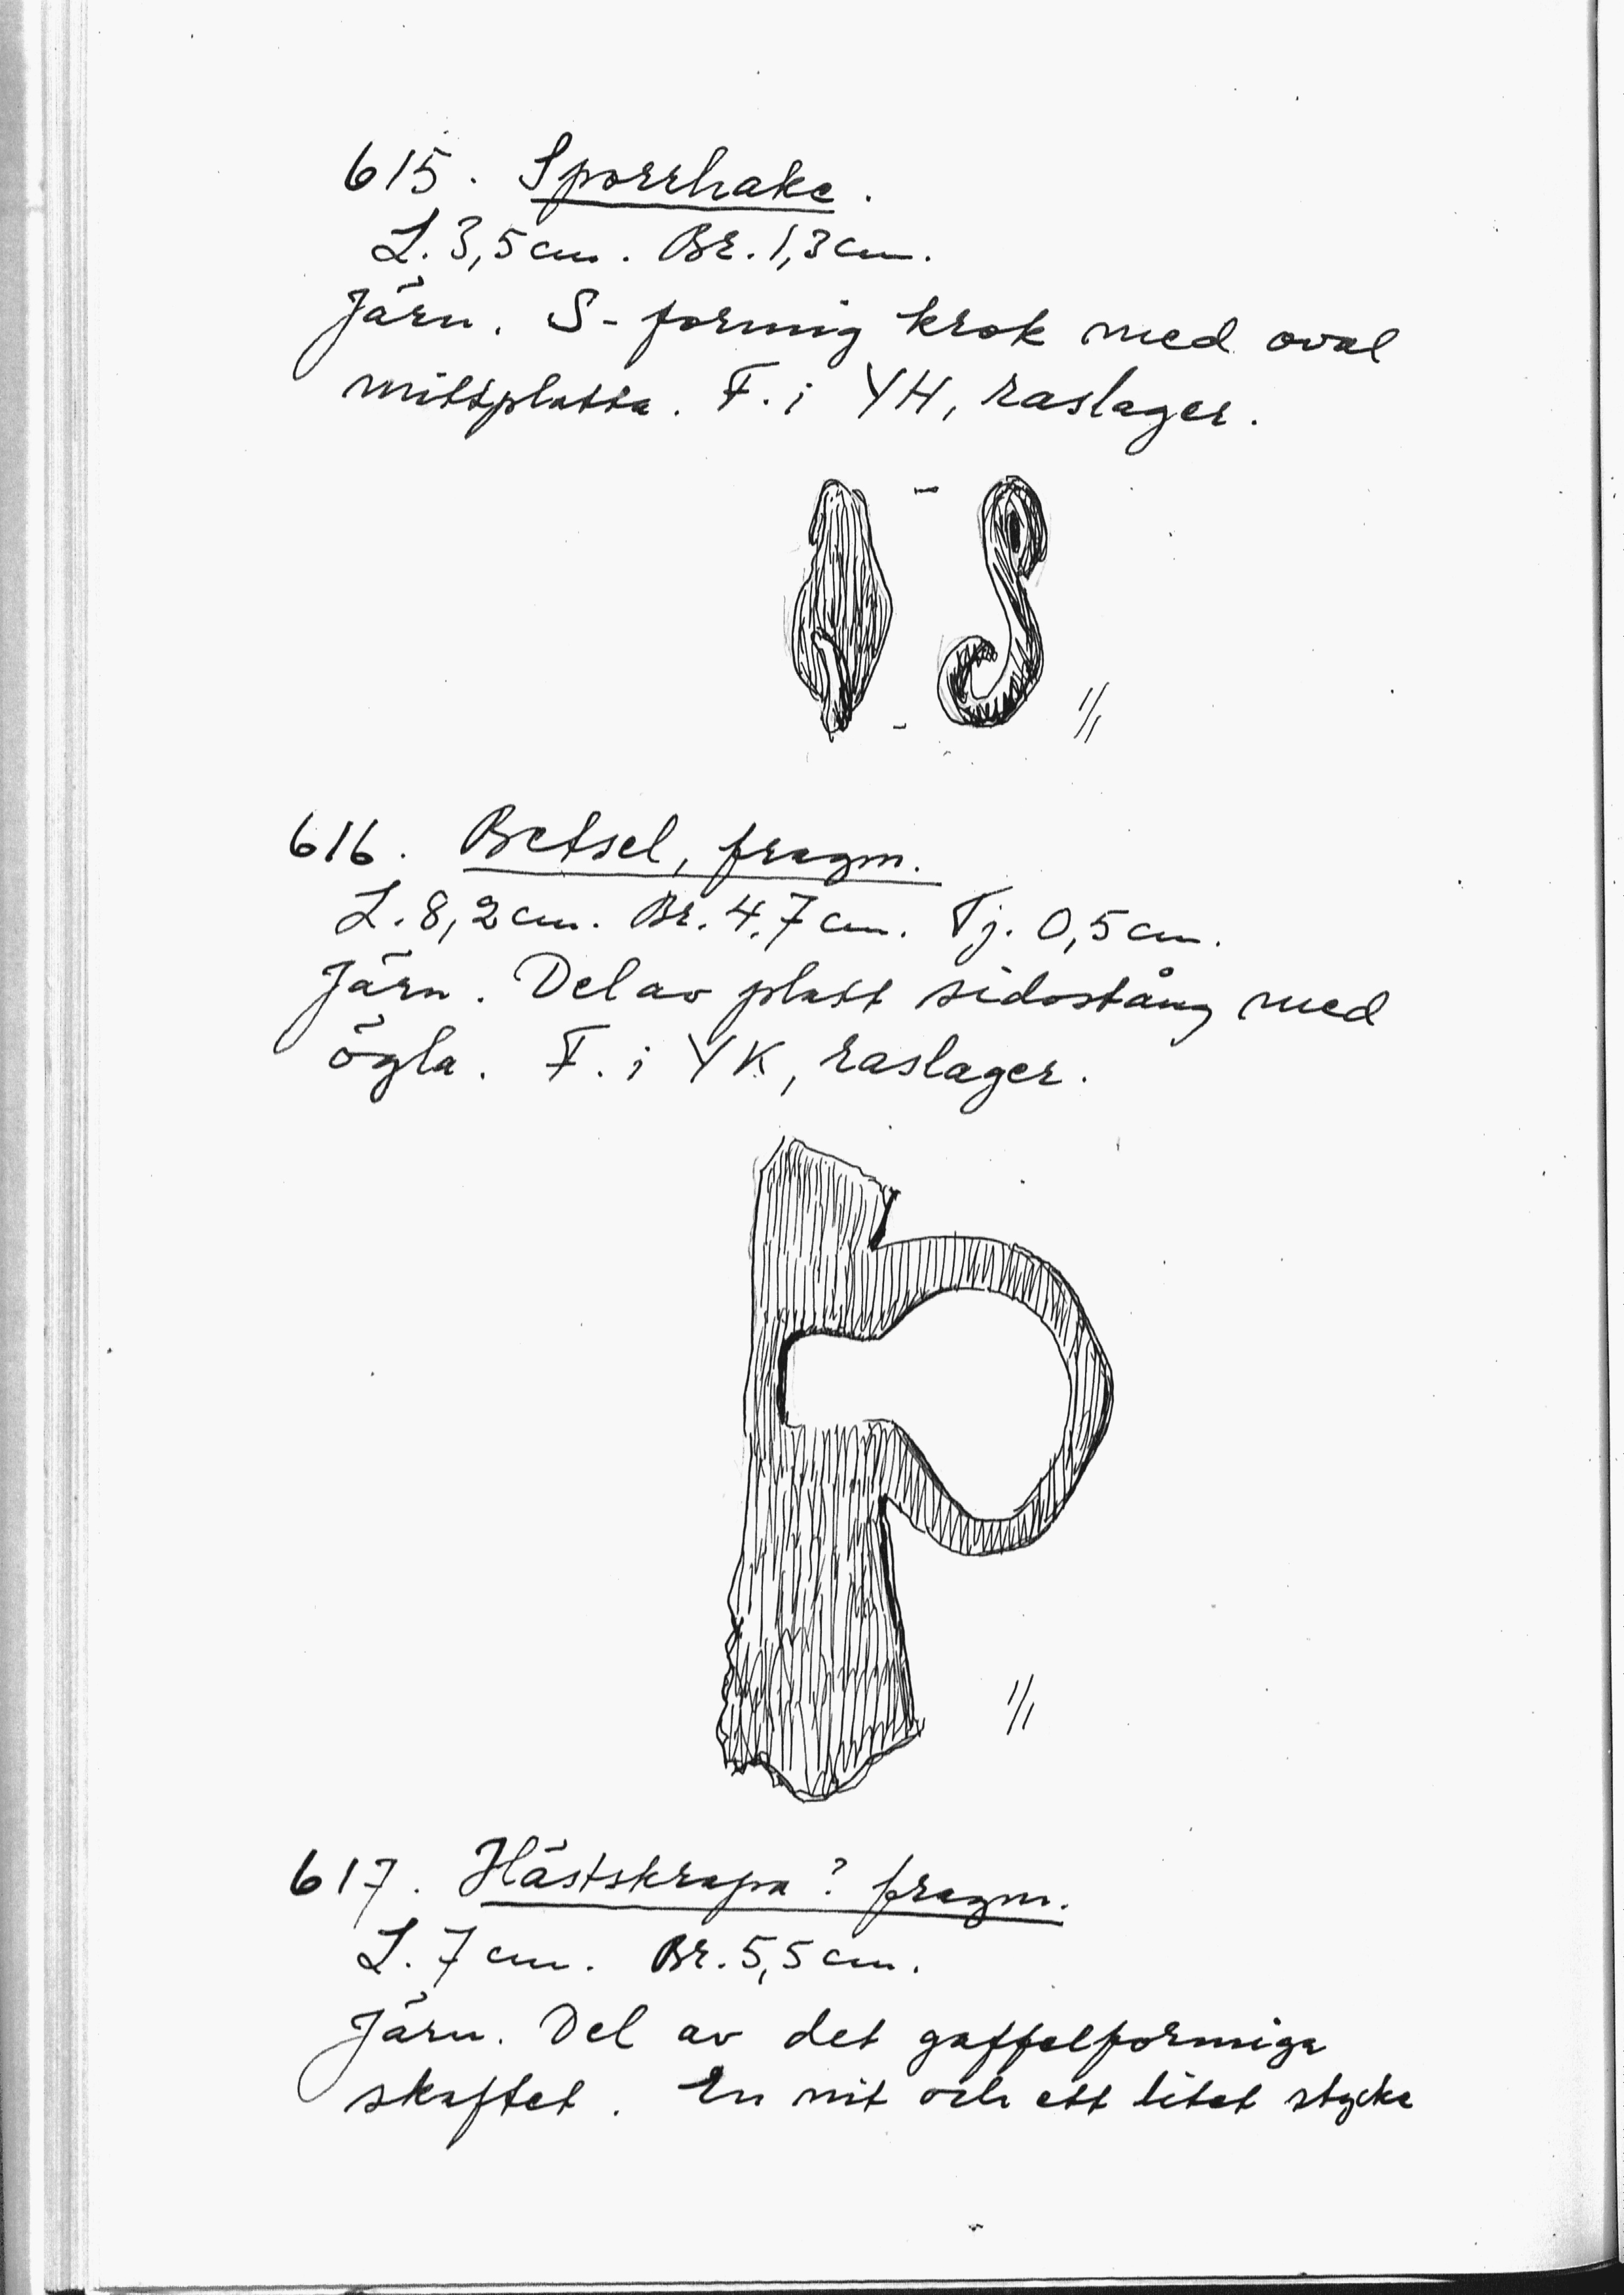 615. Sporrhake.
L. 3,5 cm. Br. 1,3 cm.
Järn. S-formig krok med oval
mittplatta. F. i YH, raslager.
1/1
616. Betsel, fragm.
L. 8,2 cm. Br. 4,7 cm. Tj. 0,5 cm.
Järn. Del av platt sidostång med
ögla. F. i YK, raslager.
1/1
617. Hästskrapa? fragm.
L. 7 cm. Br. 5,5 cm.
Järn. Del av det gaffelformiga
skaftet. En nit och ett litet stycke